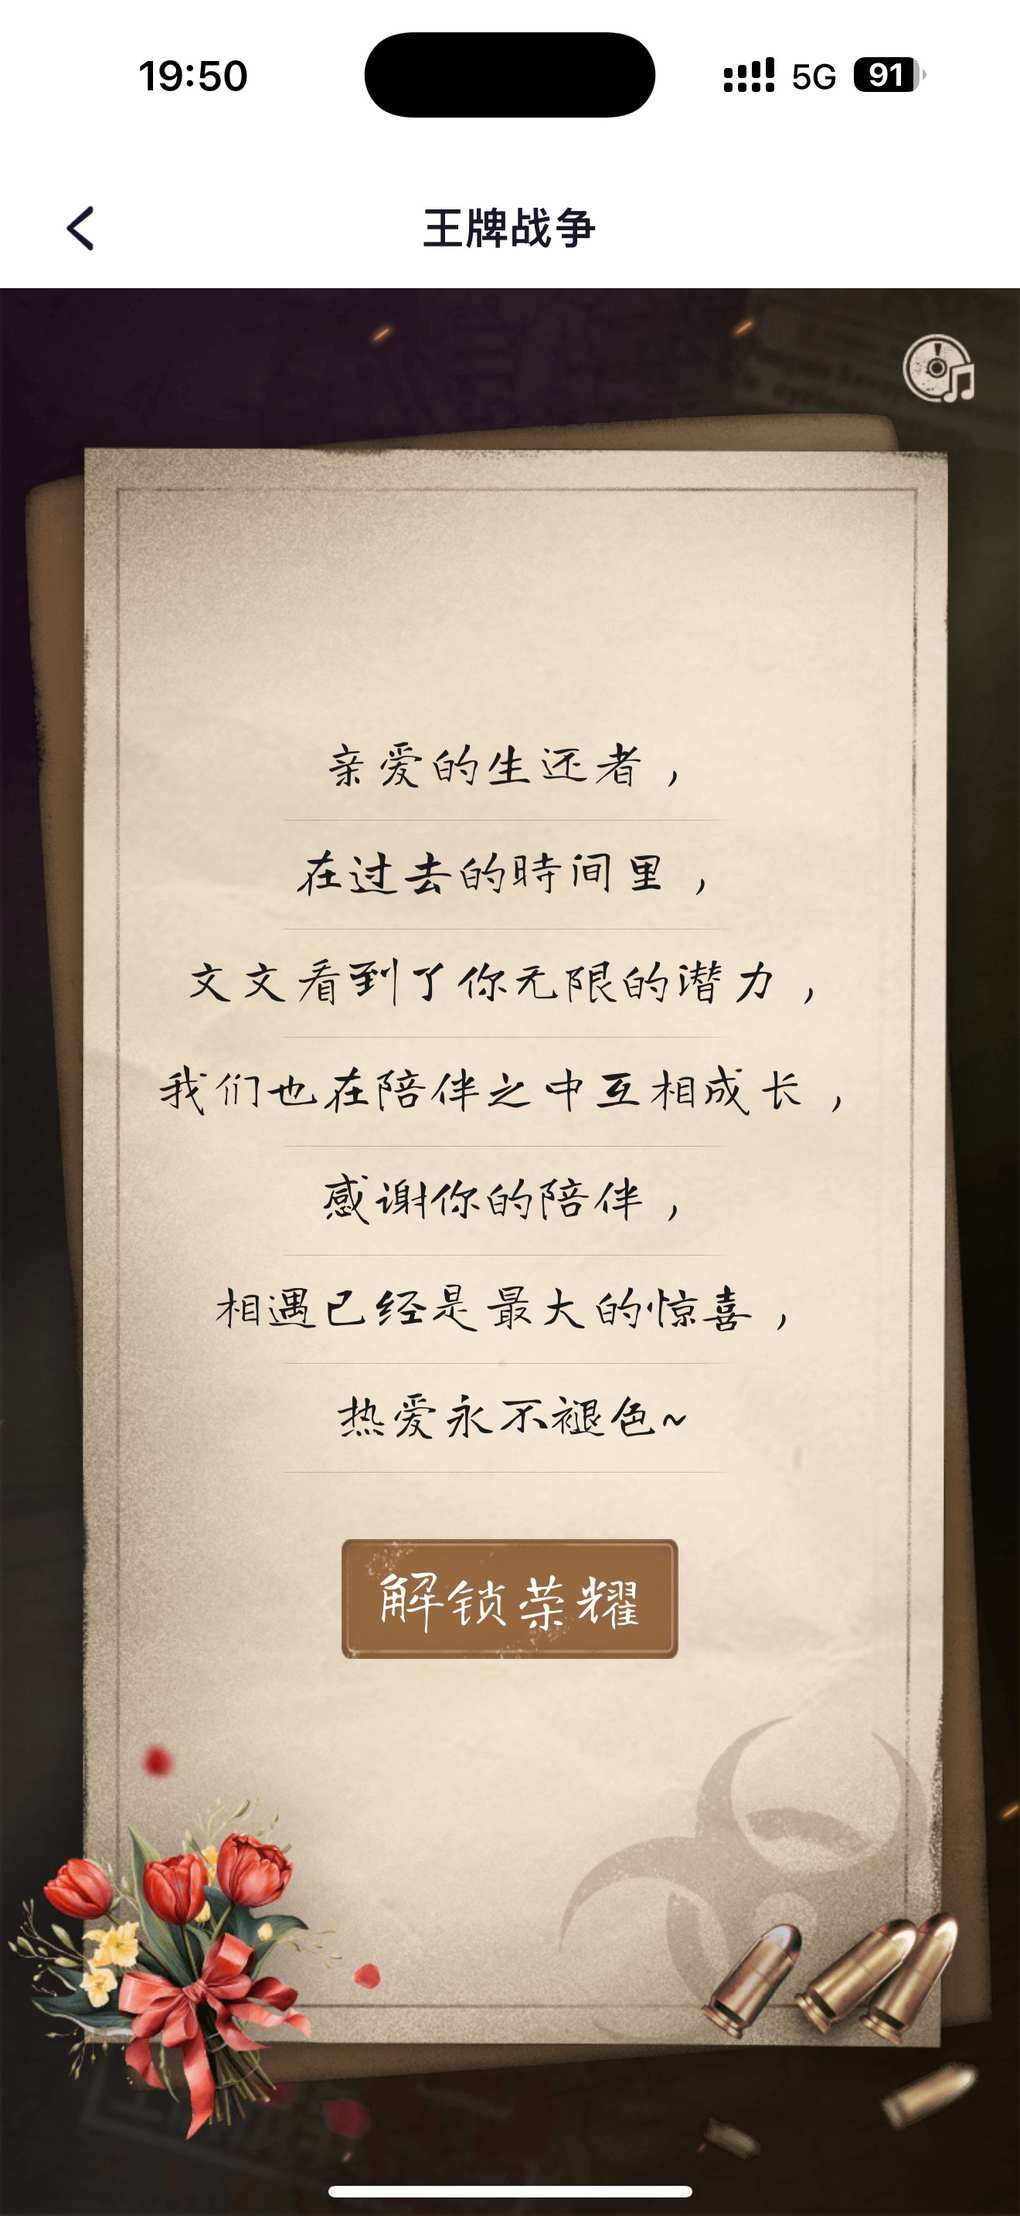 19:50
5G
91
王牌战争
亲爱的生还者，
在过去的時间里，
文文看到了你无限的潜力，
我们也在陪伴之中互相成长，
感谢你的陪伴，
相遇已经是最大的惊喜，
热爱永不褪色~
解锁荣耀